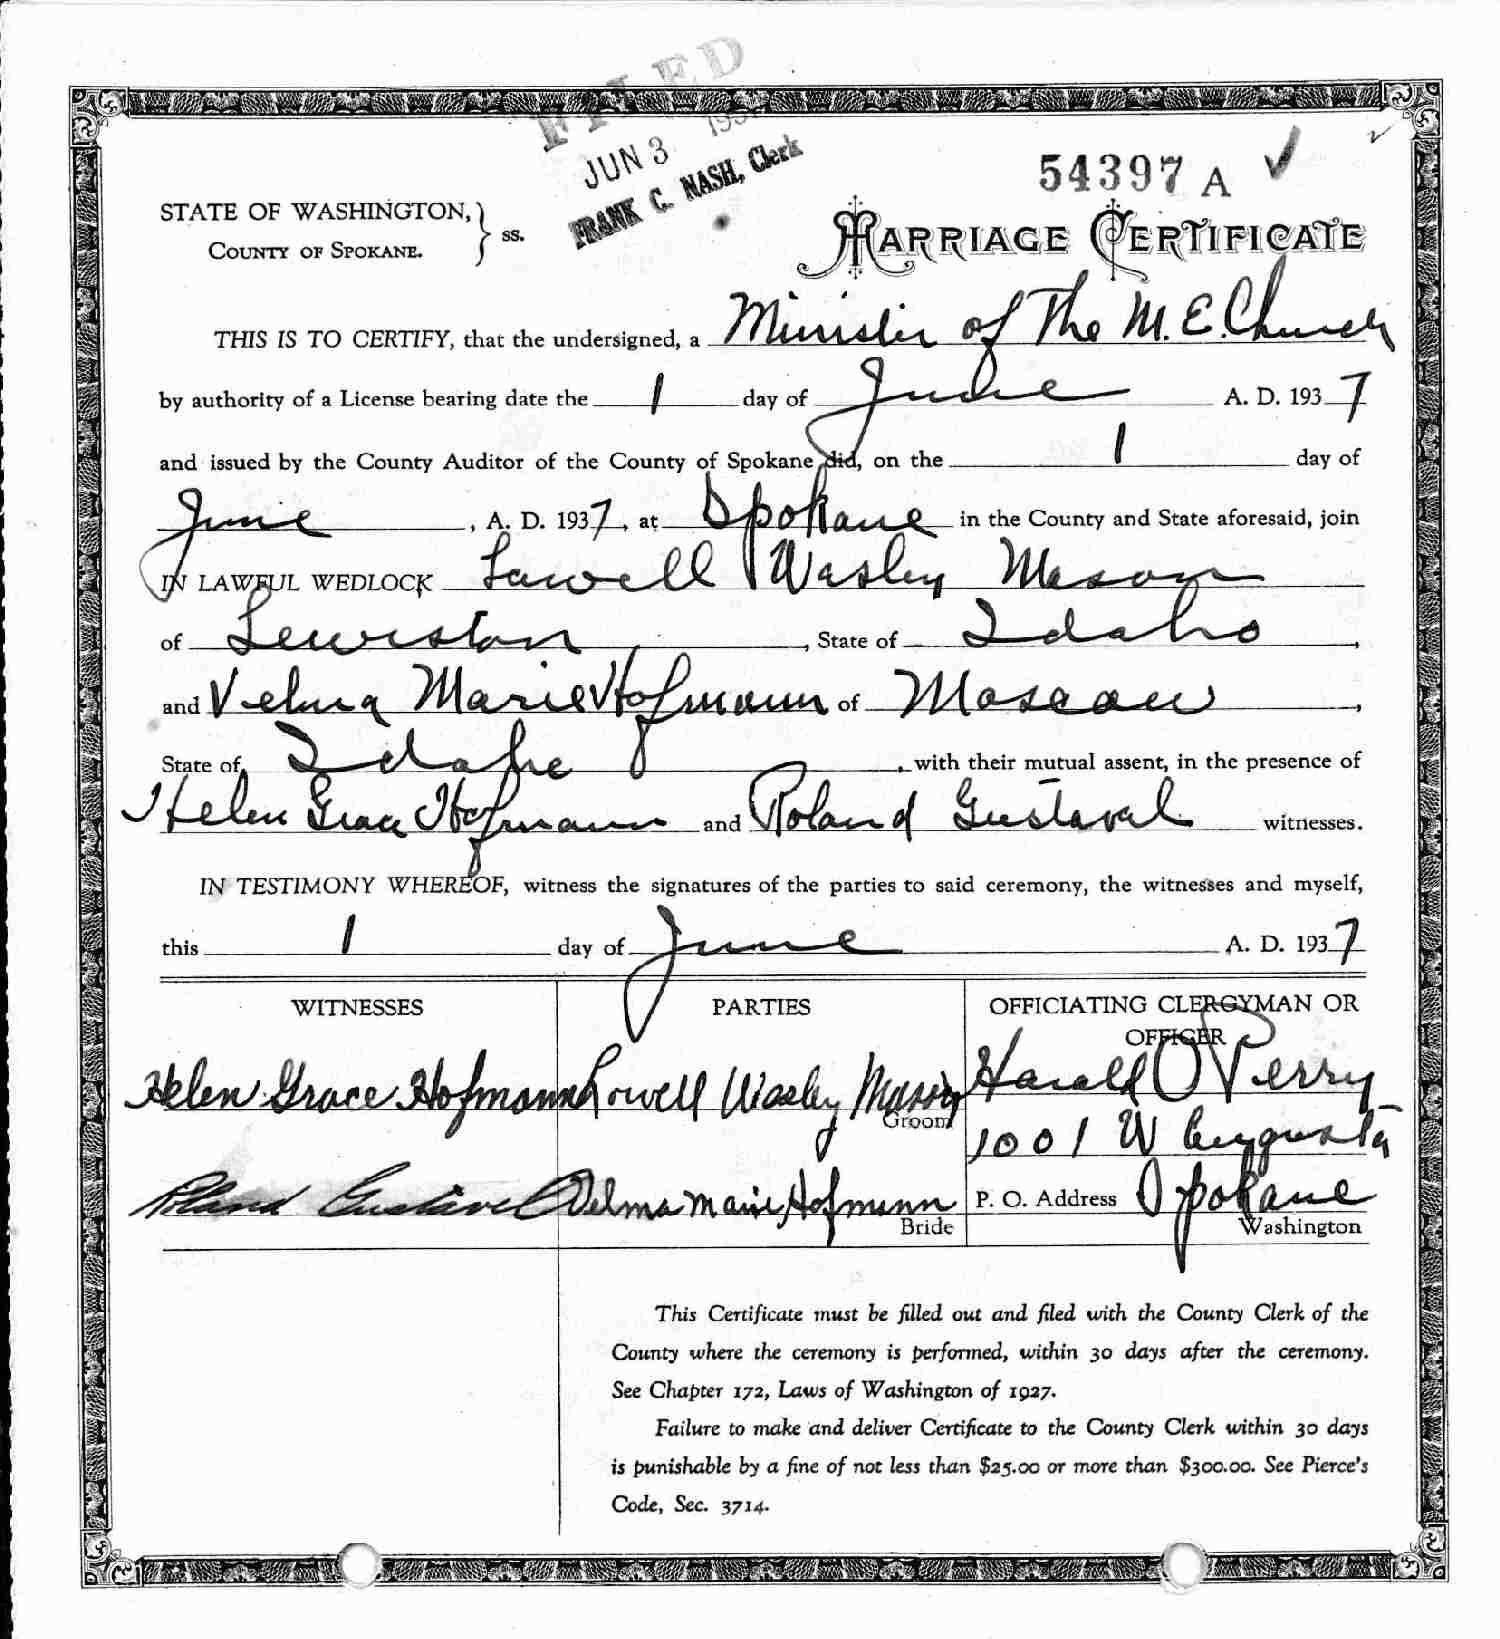 FILED
JUN 3 193
FRANK C. NASH, Clerk
54397 A
STATE OF WASHINGTON, } ss.
COUNTY OF SPOKANE.
MARRIAGE CERTIFICATE
THIS IS TO CERTIFY, that the undersigned, a Minister of The M.E. Church
by authority of a License bearing date the 1 day of June A. D. 1937
and issued by the County Auditor of the County of Spokane did, on the 1 day of
June, A. D. 1937, at Spokane in the County and State aforesaid, join
IN LAWFUL WEDLOCK Lowell Wasley Mason
of Lewiston, State of Idaho,
and Velma Marie Hofmann of Moscow,
State of Idaho, with their mutual assent, in the presence of
Helen Grace Hofmann and Roland Gustaval witnesses.
IN TESTIMONY WHEREOF, witness the signatures of the parties to said ceremony, the witnesses and myself,
this 1 day of June A. D. 1937
WITNESSES
Helen Grace Hofmann
Roland Gustavel
PARTIES
Lowell Wasley Mason
Groom
Velma Marie Hofmann
Bride
OFFICIATING CLERGYMAN OR
OFFICER
Harald O Perry
1001 W Augusta
P. O. Address Spokane
Washington
This Certificate must be filled out and filed with the County Clerk of the
County where the ceremony is performed, within 30 days after the ceremony.
See Chapter 172, Laws of Washington of 1927.
Failure to make and deliver Certificate to the County Clerk within 30 days
is punishable by a fine of not less than $25.00 or more than $300.00. See Pierce's
Code, Sec. 3714.